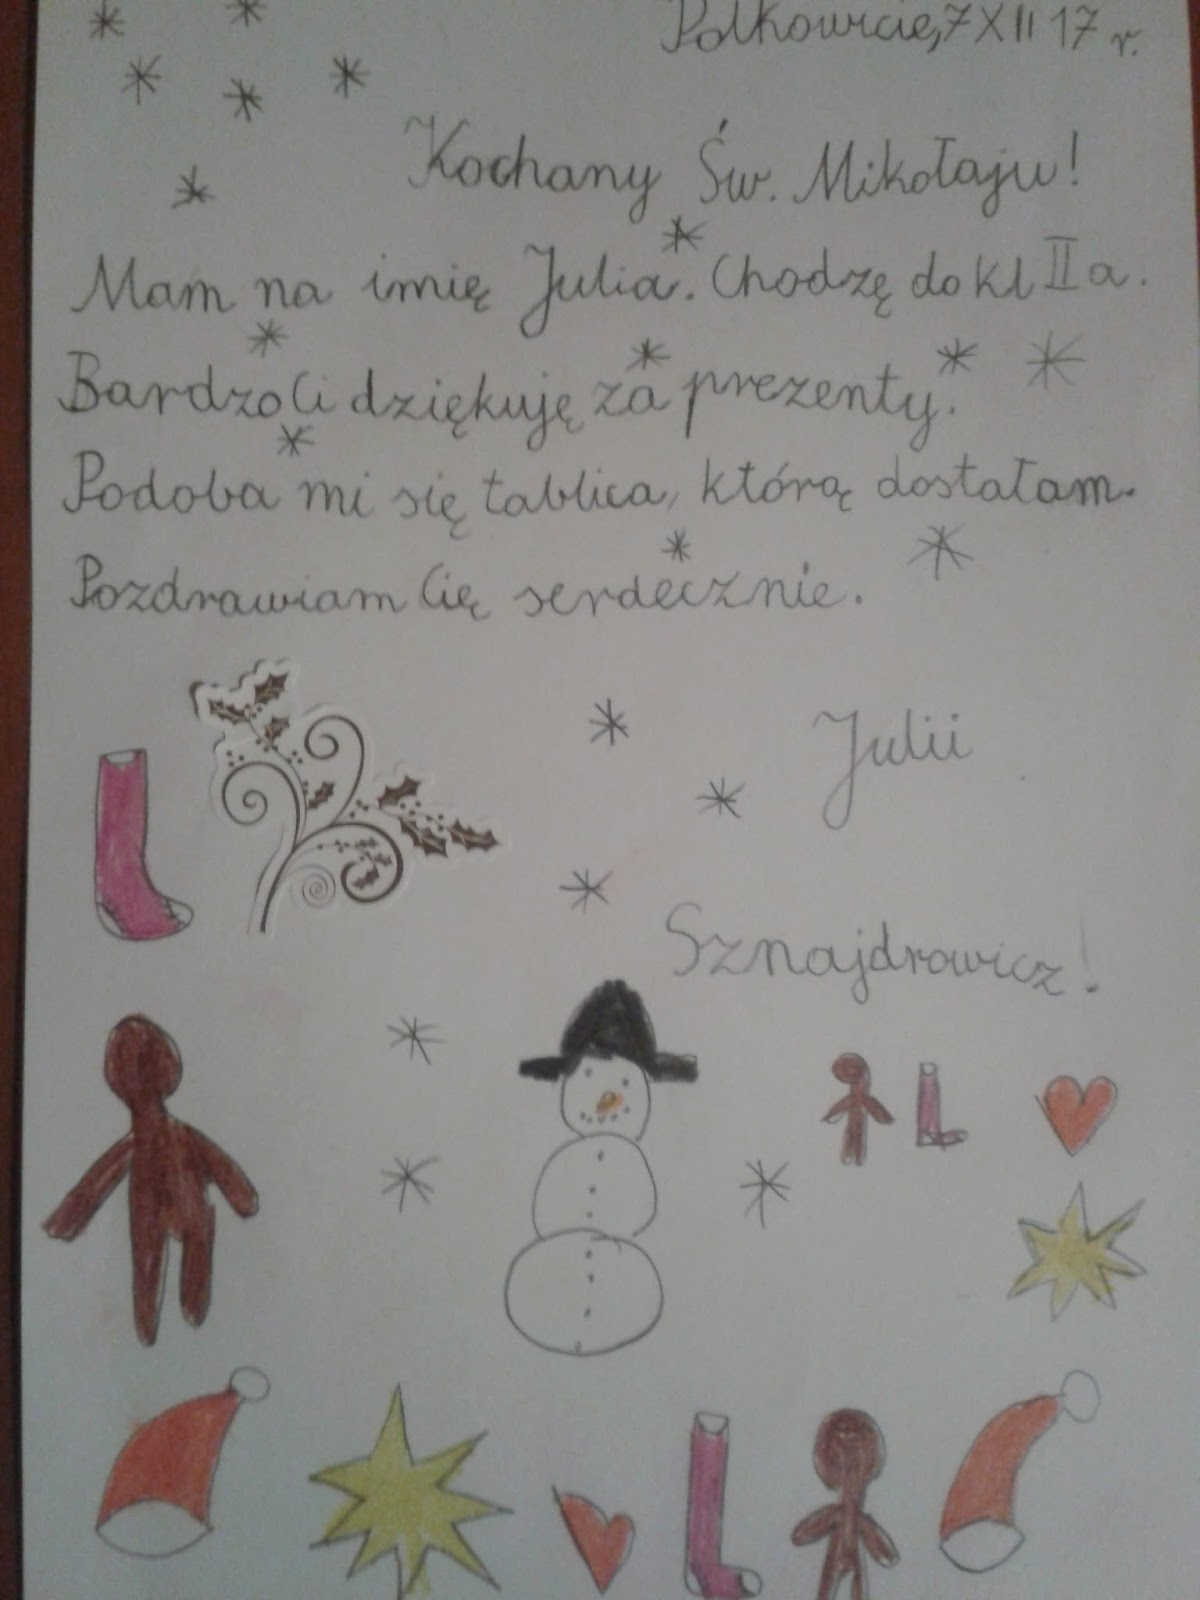 Polkowice, 7 XII 17 r.
Kochany Św. Mikołaju!
Mam na imię Julia. Chodzę do kl II a.
Bardzo Ci dziękuję za prezenty.
Podoba mi się tablica, którą dostałam.
Pozdrawiam Cię serdecznie.
Julii
Sznajdrowicz!